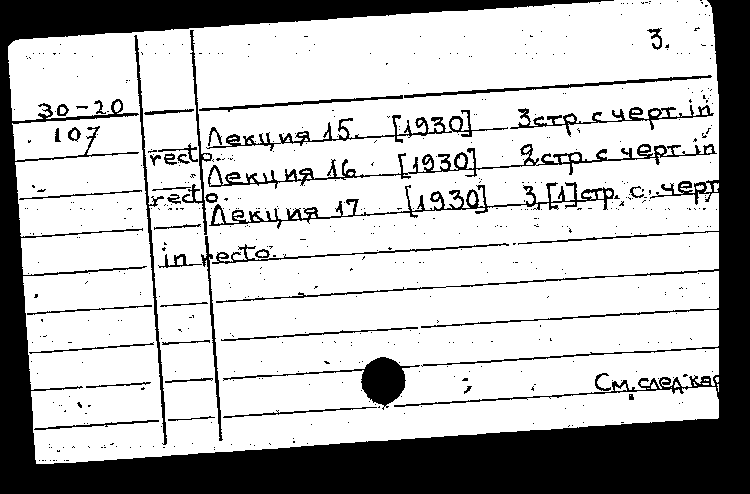 3.
30-20
107
Лекция 15. [1930] 3 стр. с черт. in
recto.
Лекция 16. [1930] 2 стр. с черт. in
recto.
Лекция 17. [1930] 3, [1] стр. с. черт
in recto.
См. след. кар